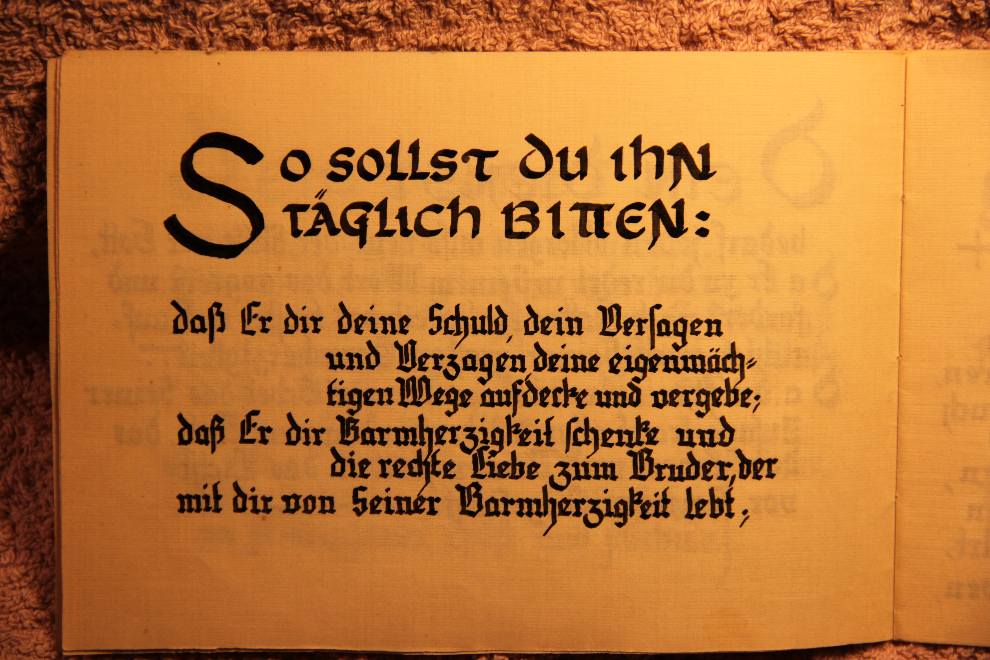 So sollst du ihn
täglich bitten:
daß Er dir deine Schuld, dein Versagen
und Verzagen, deine eigenmäch-
tigen Wege aufdecke und vergebe;
daß Er dir Barmherzigkeit schenke und
die rechte Liebe zum Bruder, der
mit dir von Seiner Barmherzigkeit lebt;